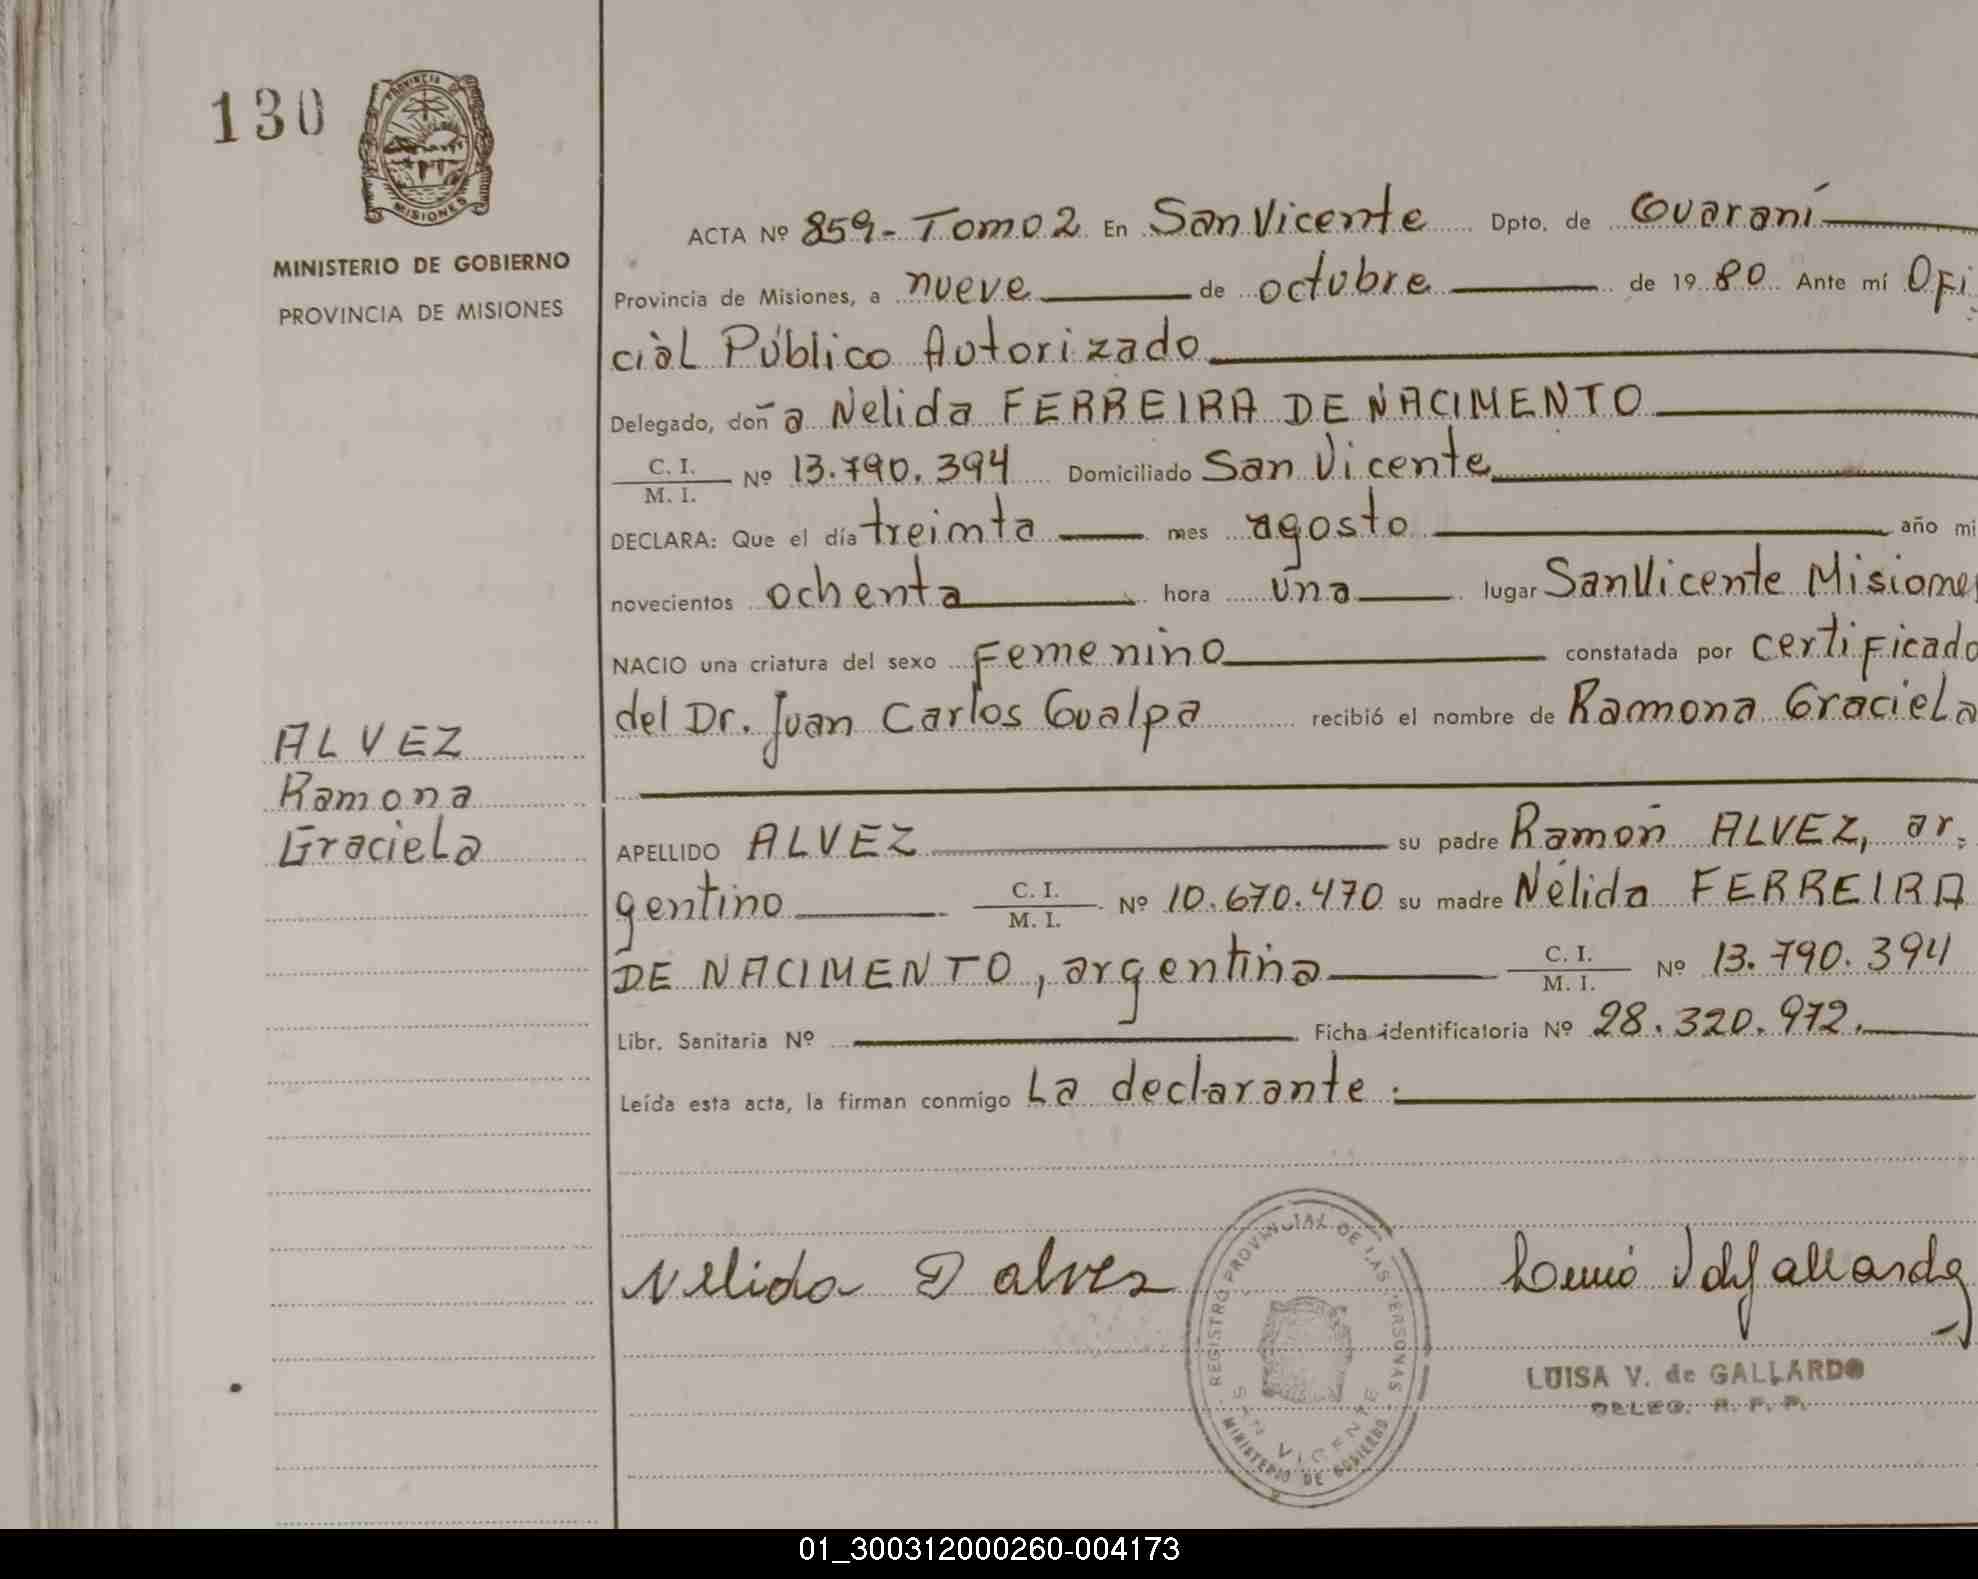 130
PROVINCIA DE
MISIONES
MINISTERIO DE GOBIERNO
PROVINCIA DE MISIONES
ACTA Nº 859-Tomo 2 En San Vicente Dpto. de Guaraní
Provincia de Misiones, a nueve de octubre de 1980 Ante mí Ofi
ciàl Público Autorizado
Delegado, doña Nelida FERREIRA DE NACIMENTO
C. I.
M. I. Nº 13.790.394 Domiciliado San Vicente
DECLARA: Que el día treimta mes agosto año mi
novecientos ochenta hora una lugar San Vicente Misiones
NACIO una criatura del sexo Femenino constatada por certificado
del Dr. Juan Carlos Gualpa recibió el nombre de Ramona Graciela
ALVEZ
Ramona
Graciela
APELLIDO ALVEZ su padre Ramón ALVEZ, ar-
gentino C. I.
M. I. Nº 10.670.470 su madre Nélida FERREIRA
DE NACIMENTO, argentina C. I.
M. I. Nº 13.790.394
Libr. Sanitaria Nº Ficha identificatoria Nº 28.320.972.
Leída esta acta, la firman conmigo La declarante.
Nelida D alves
REGISTRO PROVINCIAL DE LAS PERSONAS
SAN VICENTE
MINISTERIO DE GOBIERNO
LUISA V. de GALLARDO
DELEG. R. P. P.
01_300312000260-004173